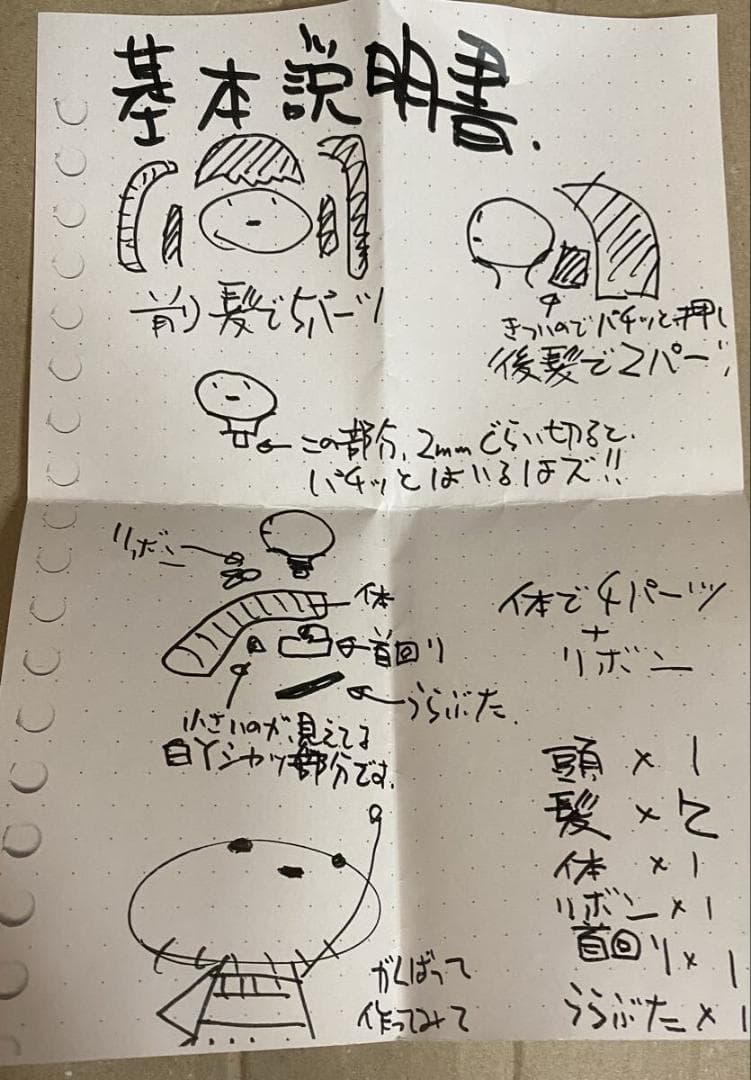 基本説明書.
前髪で5パーツ
きついのでパチッと押し
後髪で2パーツ
この部分、2mmぐらい切ると、
パチッとはいるはズ!!
リボン
体
首回り
うらぶた.
小さいのが、見えてる
白Yシャツ部分です.
体で4パーツ
+
リボン
頭×1
髪×7
体×1
リボン×1
首回り×1
うらぶた×1
がんばって
作ってみて